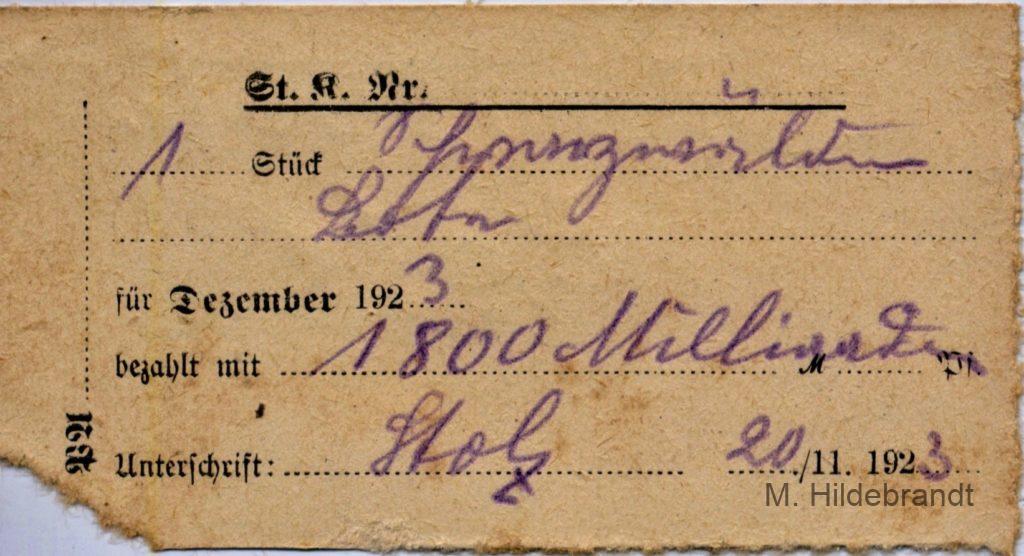 St. K. Nr.
1 Stück Schwarzwälder
Bote
für Dezember 1923
bezahlt mit 1800 Milliarden M Pf
Unterschrift: Stolz 20/11. 1923
PA
M. Hildebrandt